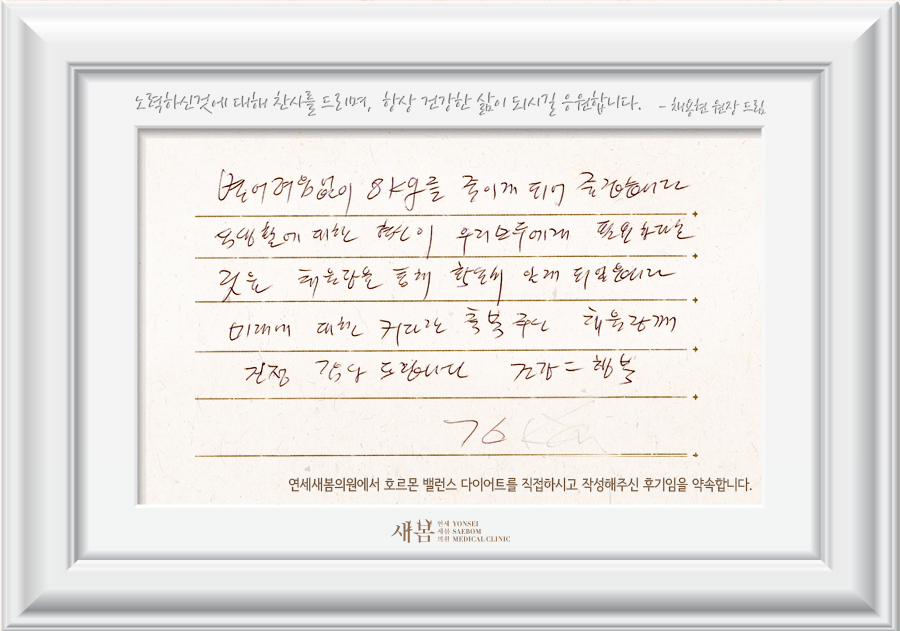 노력하신것에 대해 찬사를 드리며, 항상 건강한 삶이 되시길 응원합니다. - 채용현 원장 드림
별어려움없이 8kg를 줄이게 되어 즐겁습니다
식생활에 대한 혁신이 우리모두에게 필요하다는
것을 통해 확실히 알게 되었습니다
미래에 대한 커다란 축복 주신
진정 감사 드립니다 건강 = 행복
76
연세새봄의원에서 호르몬 밸런스 다이어트를 직접하시고 작성해주신 후기임을 약속합니다.
새봄 연세 새봄 의원 YONSEI SAEBOM MEDICAL CLINIC